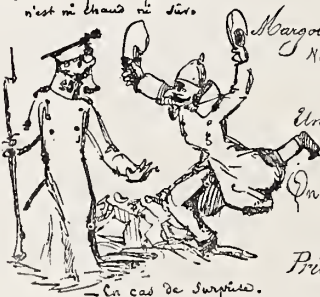 n'est ni chaud ni sûr.
Margo
Un
On
Pri
En cas de surprise.